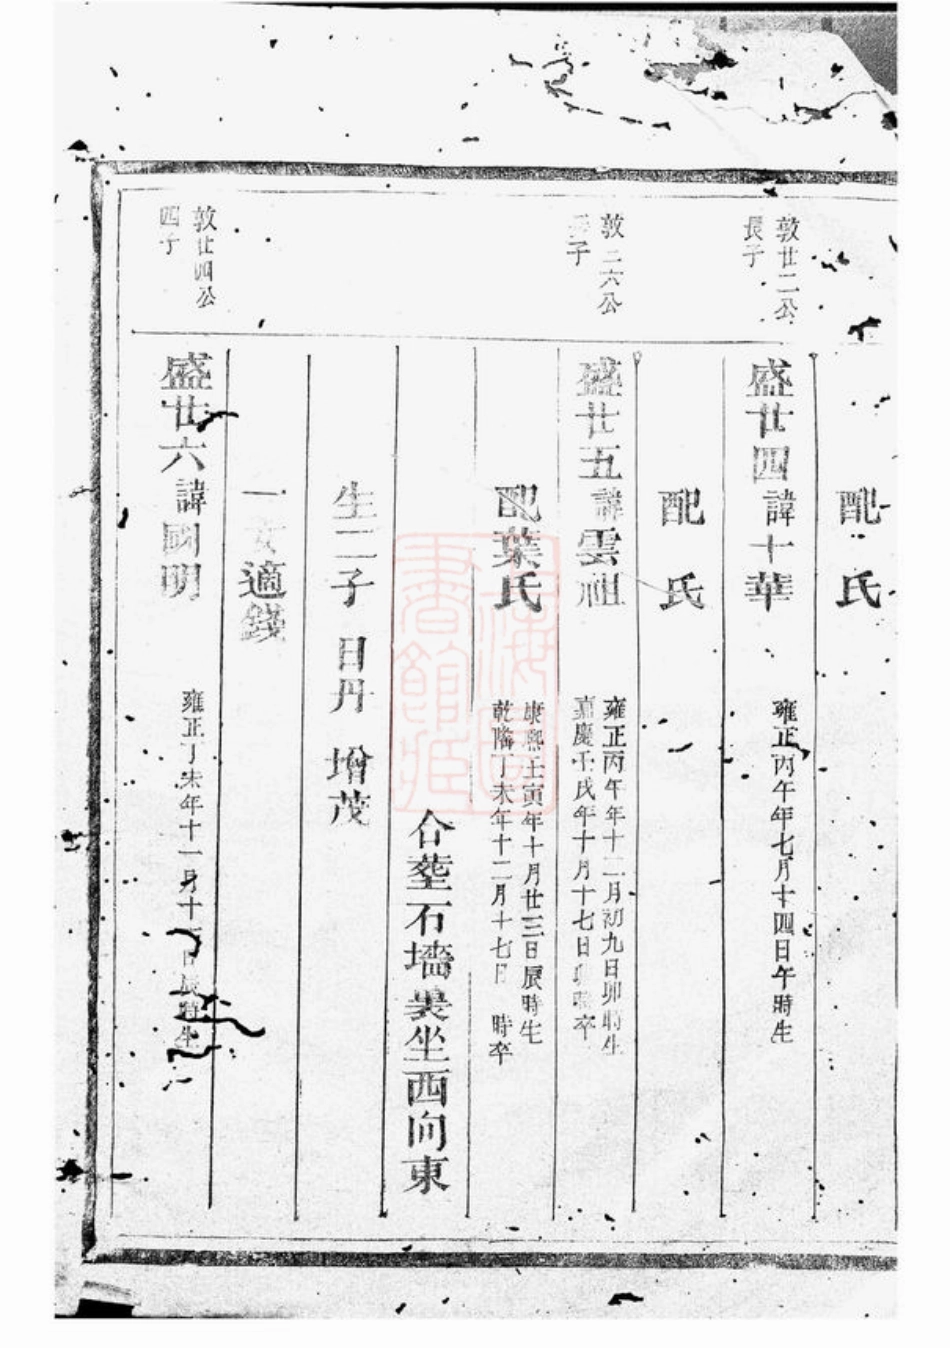 配 氏
敦廿二公
長子
盛廿四諱十華 雍正丙午年七月十四日午時生
配 氏
敦二六公
子
盛廿五諱雲祖 雍正丙午年十二月初九日卯時生
嘉慶壬戌年十月十七日卯時卒
配葉氏 康熙壬寅年十月廿三日辰時生
乾隆丁未年十二月十七日 時卒
合塟石墻裏坐西向東
生二子 日丹 增茂
一女適錢
敦廿四公
四子
盛廿六諱國明 雍正丁未年十一月十 日辰時生
上海圖書館藏